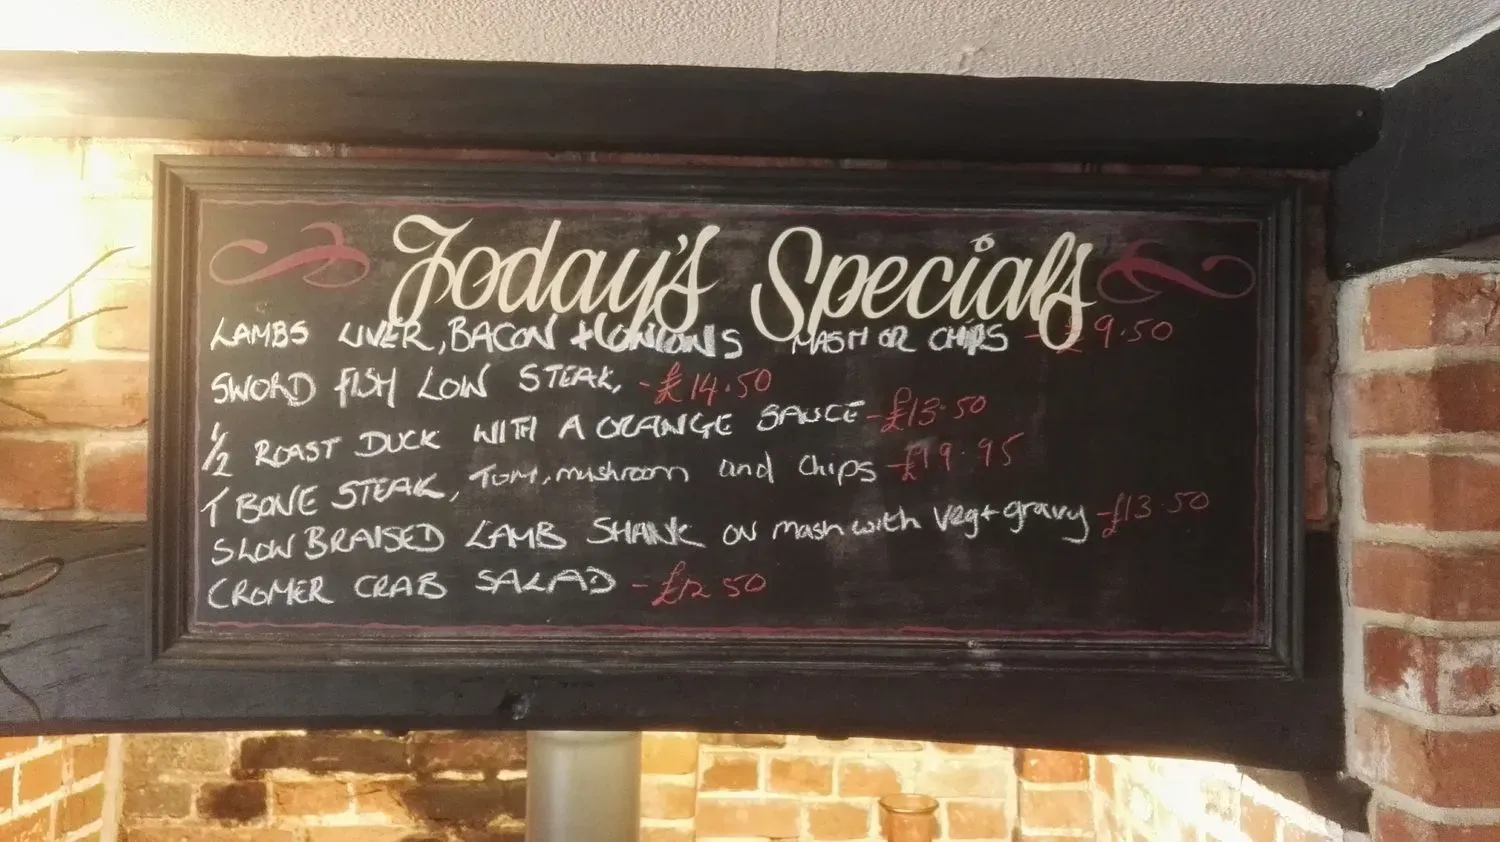 Today's Specials
LAMBS LIVER, BACON + ONIONS MASH OR CHIPS - £9.50
SWORD FISH LOW STEAK, - £14.50
1/2 ROAST DUCK WITH A ORANGE SAUCE - £13.50
T BONE STEAK, Tom, mushroom and Chips - £19.95
SLOW BRAISED LAMB SHANK ON mash with Veg + gravy - £13.50
CROMER CRAB SALAD - £12.50